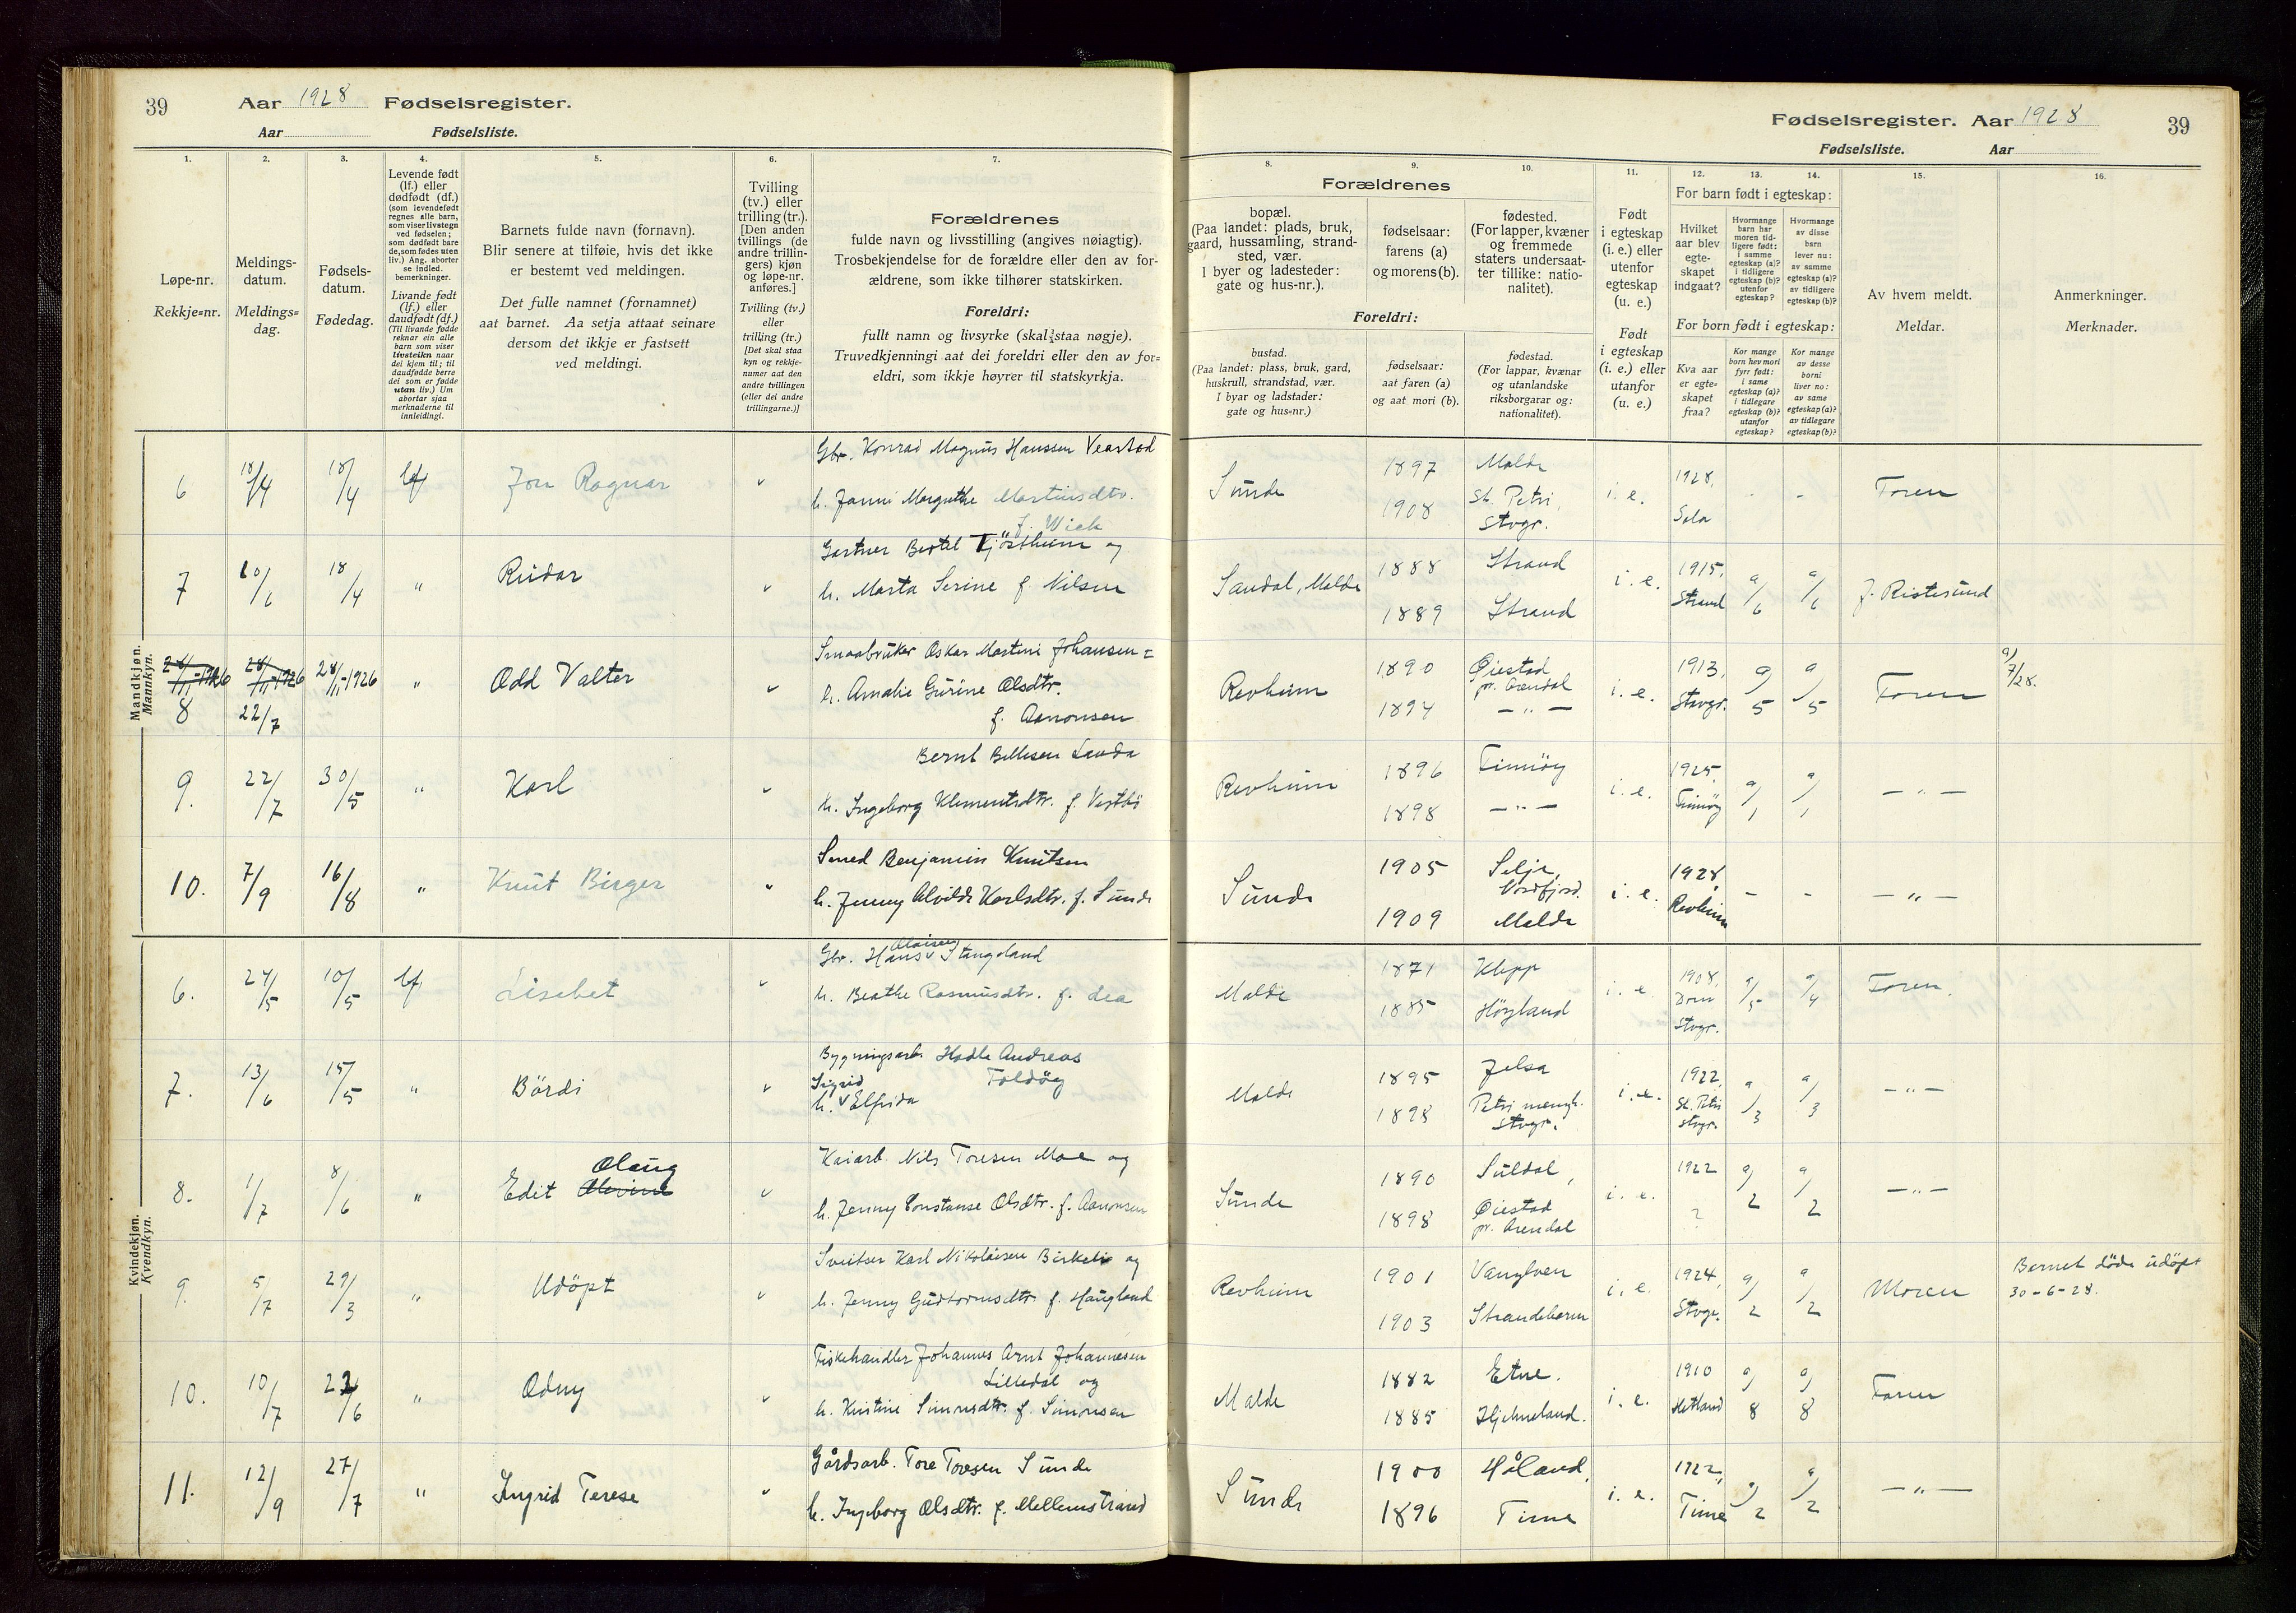 39
Aar 1928 Fødselsregister.
Aar Fødselsliste.
1.
Løpe-nr.
Rekkje=nr.
2.
Meldings-
datum.
Meldings=
dag.
3.
Fødsels-
datum.
Fødedag.
4.
Levende født
(lf.) eller
dødfødt (df.)
(som levendefødt
regnes alle barn,
som viser livstegn
ved fødselen;
som dødfødt bare
de, som fødes uten
liv.) Ang. aborter
se indled.
bemerkninger.
Livande født
(lf.) eller
daudfødt (df.)
(Til livande fødde
reknar ein alle
barn som viser
livsteikn naar
dei kjem til; til
daudfødde berre
dei som er fødde
utan liv.) Um
abortar sjaa
merknaderne til
innleidingi.
5.
Barnets fulde navn (fornavn).
Blir senere at tilføie, hvis det ikke
er bestemt ved meldingen.
Det fulle namnet (fornamnet)
aat barnet. Aa setja attaat seinare
dersom det ikkje er fastsett
ved meldingi.
6.
Tvilling
(tv.) eller
trilling (tr.).
[Den anden
tvillings (de
andre trillin-
gers) kjøn
og løpe-nr.
anføres.]
Tvilling (tv.)
eller
trilling (tr.)
[Det skal staa
kyn og rekkje-
numer aat den
andre tvillingen
(eller dei andre
trillingarne.)]
7.
Forældrenes
fulde navn og livsstilling (angives nøiagtig).
Trosbekjendelse for de forældre eller den av for-
ældrene, som ikke tilhører statskirken.
Foreldri:
fullt namn og livsyrke (skal staa nøgje).
Truvedkjenningi aat dei foreldri eller den av for=
eldri, som ikkje høyrer til statskyrkja.
Mandkjøn.
Mannkyn.
6 18/4 18/4 lf Jon Ragnar Gbr. Konrad Magnus Hanssen Veastad
h. Janni Margrethe Martinsdtr.
f. Wiek
7 20/6 18/4 " Reidar Gartner Bertel Tjøstheim og
h. Marta Serine f. Nilsen
28/11-1926 28/11-1926 28/11-1926 " Odd Valter Smaabruker Oskar Martini Johansen =
8 22/7 h. Amalie Gurine Olsdtr.
f. Aanonsen
9. 22/7 30/5 " Karl Bernt Bellesen Landa
h. Ingeborg Klementsdtr. f. Vestbö
10. 7/9 16/8 " Knut Birger Smed Benjamin Knutsen
h. Jenny Alvilde Karlsdtr. f. Sunde
Kvindekjøn.
Kvendkyn.
6. 24/5 10/5 lf. Lisebet Gbr. Hans Olaisen Stangeland
h. Beathe Rasmusdtr. f. Lea
7. 13/6 15/5 " Bördi Bygningsarb. Hadle Andreas
Foldöy
h. Sigrid Elfrida
8. 1/7 8/6 " Edit Olaug Alvine Kaiarb. Nils Toresen Moe og
h. Jenny Constanse Olsdtr. f. Aanonsen
9. 5/7 29/3 " Udöpt Sveitser Karl Nikolaisen Birkeli og
h. Jenny Gudtormsdtr. f. Haugland
10. 10/7 22/6 " Odny Fiskehandler Johannes Arnt Johannesen
Lilledal og
h. Kristine Simonsdtr. f. Simonsen
11. 12/9 27/7 " Ingrid Terese Gårdsarb. Tore Toresen Sunde
h. Ingeborg Olsdtr. f. Mellemstrand
Fødselsregister. Aar 1928 39
Fødselsliste. Aar
8.
Forældrenes
bopæl.
(Paa landet: plads, bruk,
gaard, hussamling, strand-
sted, vær.
I byer og ladesteder:
gate og hus-nr.).
Foreldri:
bustad.
(Paa landet: plass, bruk, gard,
huskrull, strandstad, vær.
I byar og ladstader:
gate og hus=nr.)
9.
fødselsaar:
farens (a)
og morens (b).
fødselsaar:
aat faren (a)
og aat mori (b).
10.
fødested.
(For lapper, kvæner
og fremmede
staters undersaat-
ter tillike: natio-
nalitet).
fødestad.
(For lappar, kvænar
og utanlandske
riksborgarar og:
nationalitet).
11.
Født
i egteskap
(i. e.) eller
utenfor
egteskap
(u. e.)
Født
i egteskap
(i. e.) eller
utanfor
(u. e.)
For barn født i egteskap:
12.
Hvilket
aar blev
egte-
skapet
indgaat?
13.
Hvormange
barn har
moren tid-
ligere født:
i samme
egteskap (a)?
i tidligere
egteskap (b)?
utenfor
egteskap?
14.
Hvormange
av disse
barn
lever nu:
av samme
egteskap (a)?
av tidligere
egteskap (b)?
For born født i egteskap:
Kva aar
er egte=
skapet
fraa?
Kor mange
born hev mori
fyrr født:
i same
egteskap (a)?
i tidlegare
egteskap (b)?
utanfor
egteskap?
Kor mange
av desse
borni
liver no:
av same
egteskap (a)?
av tidlegare
egteskap (b)?
15.
Av hvem meldt.
Meldar.
16.
Anmerkninger.
Merknader.
Sunde 1897 Malde i. e. 1928, - - Faren
1908 St. Petri, Stvgr. Sola
Sandal, Malde 1888 Strand i. e. 1915, a/6 a/6 J. Ristesund
1889 Strand Strand
Revheim 1890 Øiestad pr. Arendal i. e. 1913, a) 5 a) 5 Faren 9/7/28.
1894 — " — Stvgr.
Revheim 1896 Finnöy i. e. 1925, a/1 a/1 — " —
1898 — " — Finnöy
Sunde 1905 Selje, Nordfjord. i. e. 1928, - - — " —
1909 Malde Revheim
Malde 1871 Klepp i. e. 1908, a/5 a/4 Faren.
1885 Höyland Dom Stvgr.
Malde 1895 Jelsa i. e. 1922, a/3 a/3 — " —
1898 Petri menigh. Stvgr. St. Petri Stvgr.
Sunde 1890 Suldal, i. e. 1922 a) 2 a) 2 — " —
1898 Øiestad pr. Arendal ?
Revheim 1901 Vanylven i. e. 1924, a) 2 a) 2 Moren Barnet döde udöpt
1903 Strandebarm Stvgr. 30-6-28.
Malde 1882 Etne. i. e. 1910 a) 8 a) 8 Faren
1885 Hjelmeland. Hetland
Sunde 1900 Håland, i. e. 1922, a) 2 a) 2 — " —
1896 Time Time